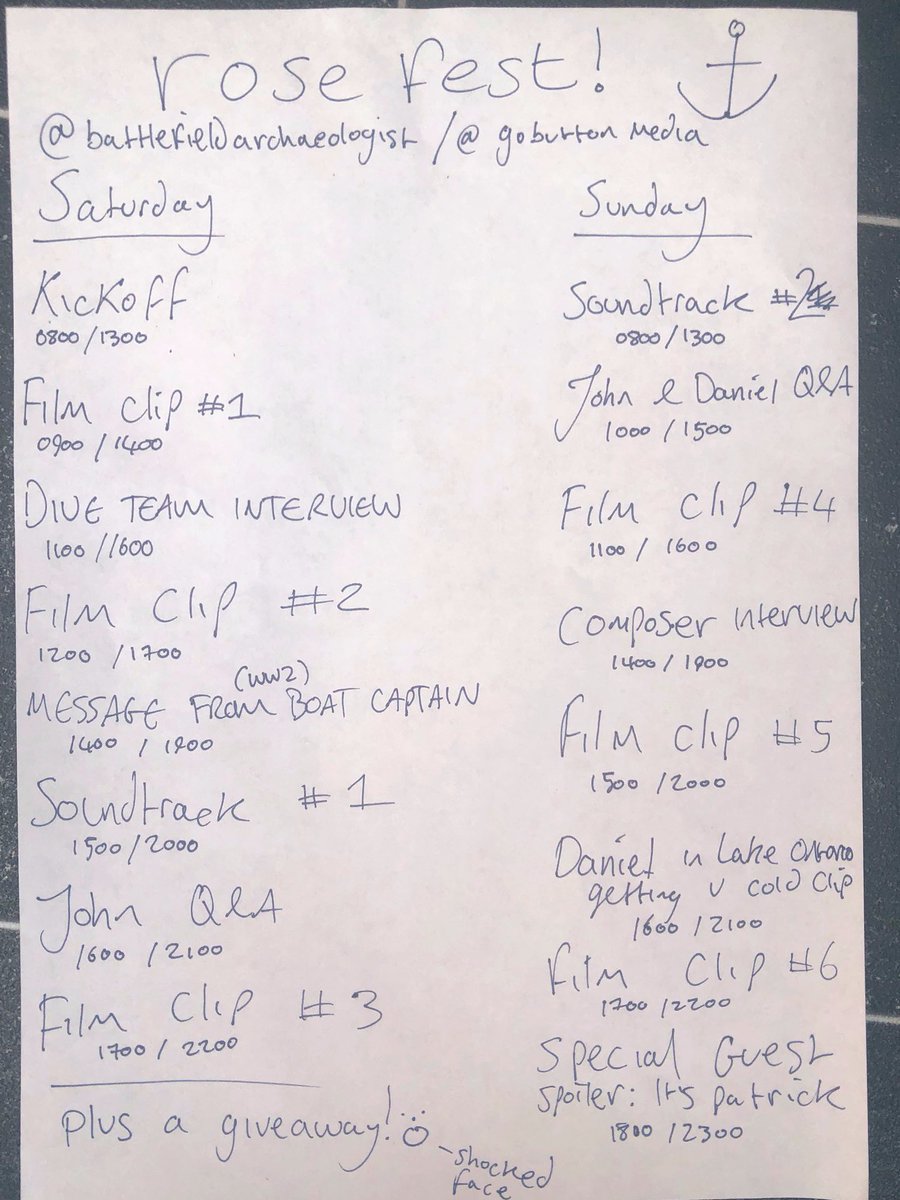 rose fest!
@battlefieldarchaeologist / @goburtonmedia
Saturday
Kickoff
0800/1300
Film Clip #1
0900/1400
DIVE TEAM INTERVIEW
1100//1600
Film Clip #2
1200/1700
(WW2)
MESSAGE FROM BOAT CAPTAIN
1400/1900
Soundtrack #1
1500/2000
John Q&A
1600/2100
Film Clip #3
1700/2200
plus a giveaway!
shocked
face
Sunday
Soundtrack #2
0800/1300
John & Daniel Q&A
1000/1500
Film Clip #4
1100/1600
Composer interview
1400/1900
Film Clip #5
1500/2000
Daniel in Lake Ontario
getting v cold clip
1600/2100
Film Clip #6
1700/2200
Special Guest
spoiler: It's patrick
1800/2300